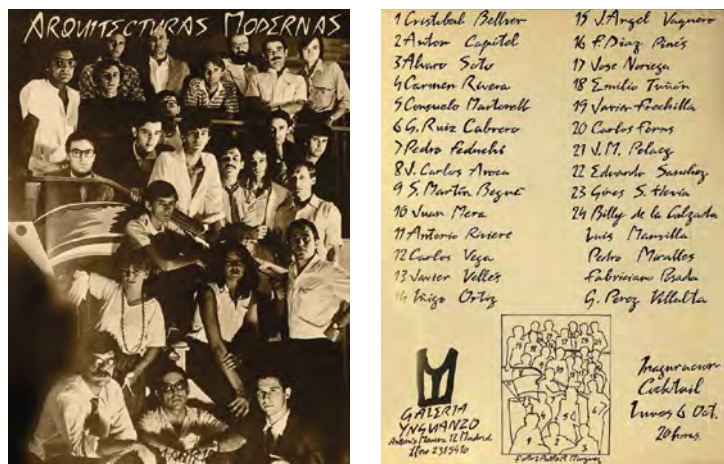 ARQUITECTURAS MODERNAS
1 Cristobal Bellver
2 Anton Capitel
3 Alvaro Soto
4 Carmen Rivera
5 Consuelo Martorell
6 G. Ruiz Cabrero
7 Pedro Feduchi
8 V. Carlos Aroca
9 S. Martin Begué
10 Juan Mera
11 Antonio Riviere
12 Carlos Vega
13 Javier Velles
14 Iñigo Ortiz
15 J. Angel Vaquero
16 F. Diaz Pinés
17 Jose Noriega
18 Emilio Tuñón
19 Javier Frechilla
20 Carlos Forns
21 J.M. Pelaez
22 Eduardo Sanchez
23 Gines S. Hevia
24 Billy de la Calzada
Luis Mansilla
Pedro Moralles
Fabriciano Posada
G. Perez Villalta
GALERIA
YNGUANZO
Antonio Maura 12 Madrid
Inauguracion
Cocktail
Lunes 6 Oct.
20 horas.